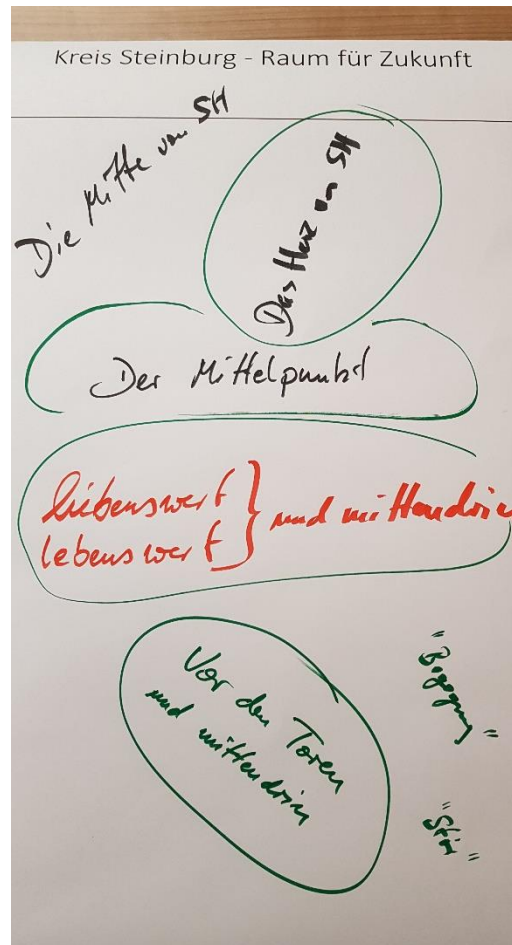 Kreis Steinburg - Raum für Zukunft
Die Mitte von SH
Das Herz von SH
Der Mittelpunkt
liebenswert } und mittendrin
lebenswert
Vor den Toren
und mittendrin
"Begegnung"
"Stör"